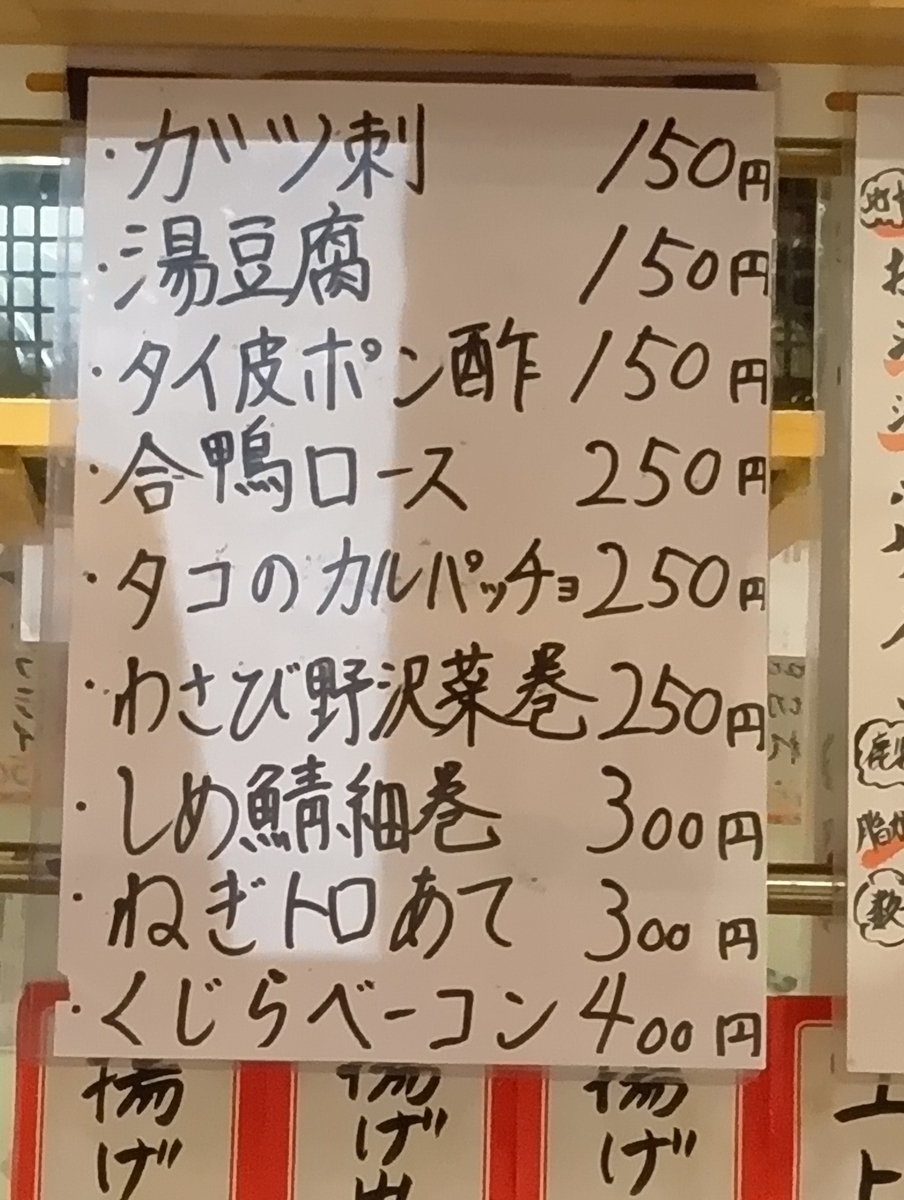 ・ガツ刺 150円
・湯豆腐 150円
・タイ皮ポン酢 150円
・合鴨ロース 250円
・タコのカルパッチョ 250円
・わさび野沢菜巻 250円
・しめ鯖細巻 300円
・ねぎトロあて 300円
・くじらベーコン 400円
揚げ
揚げ出
揚げ